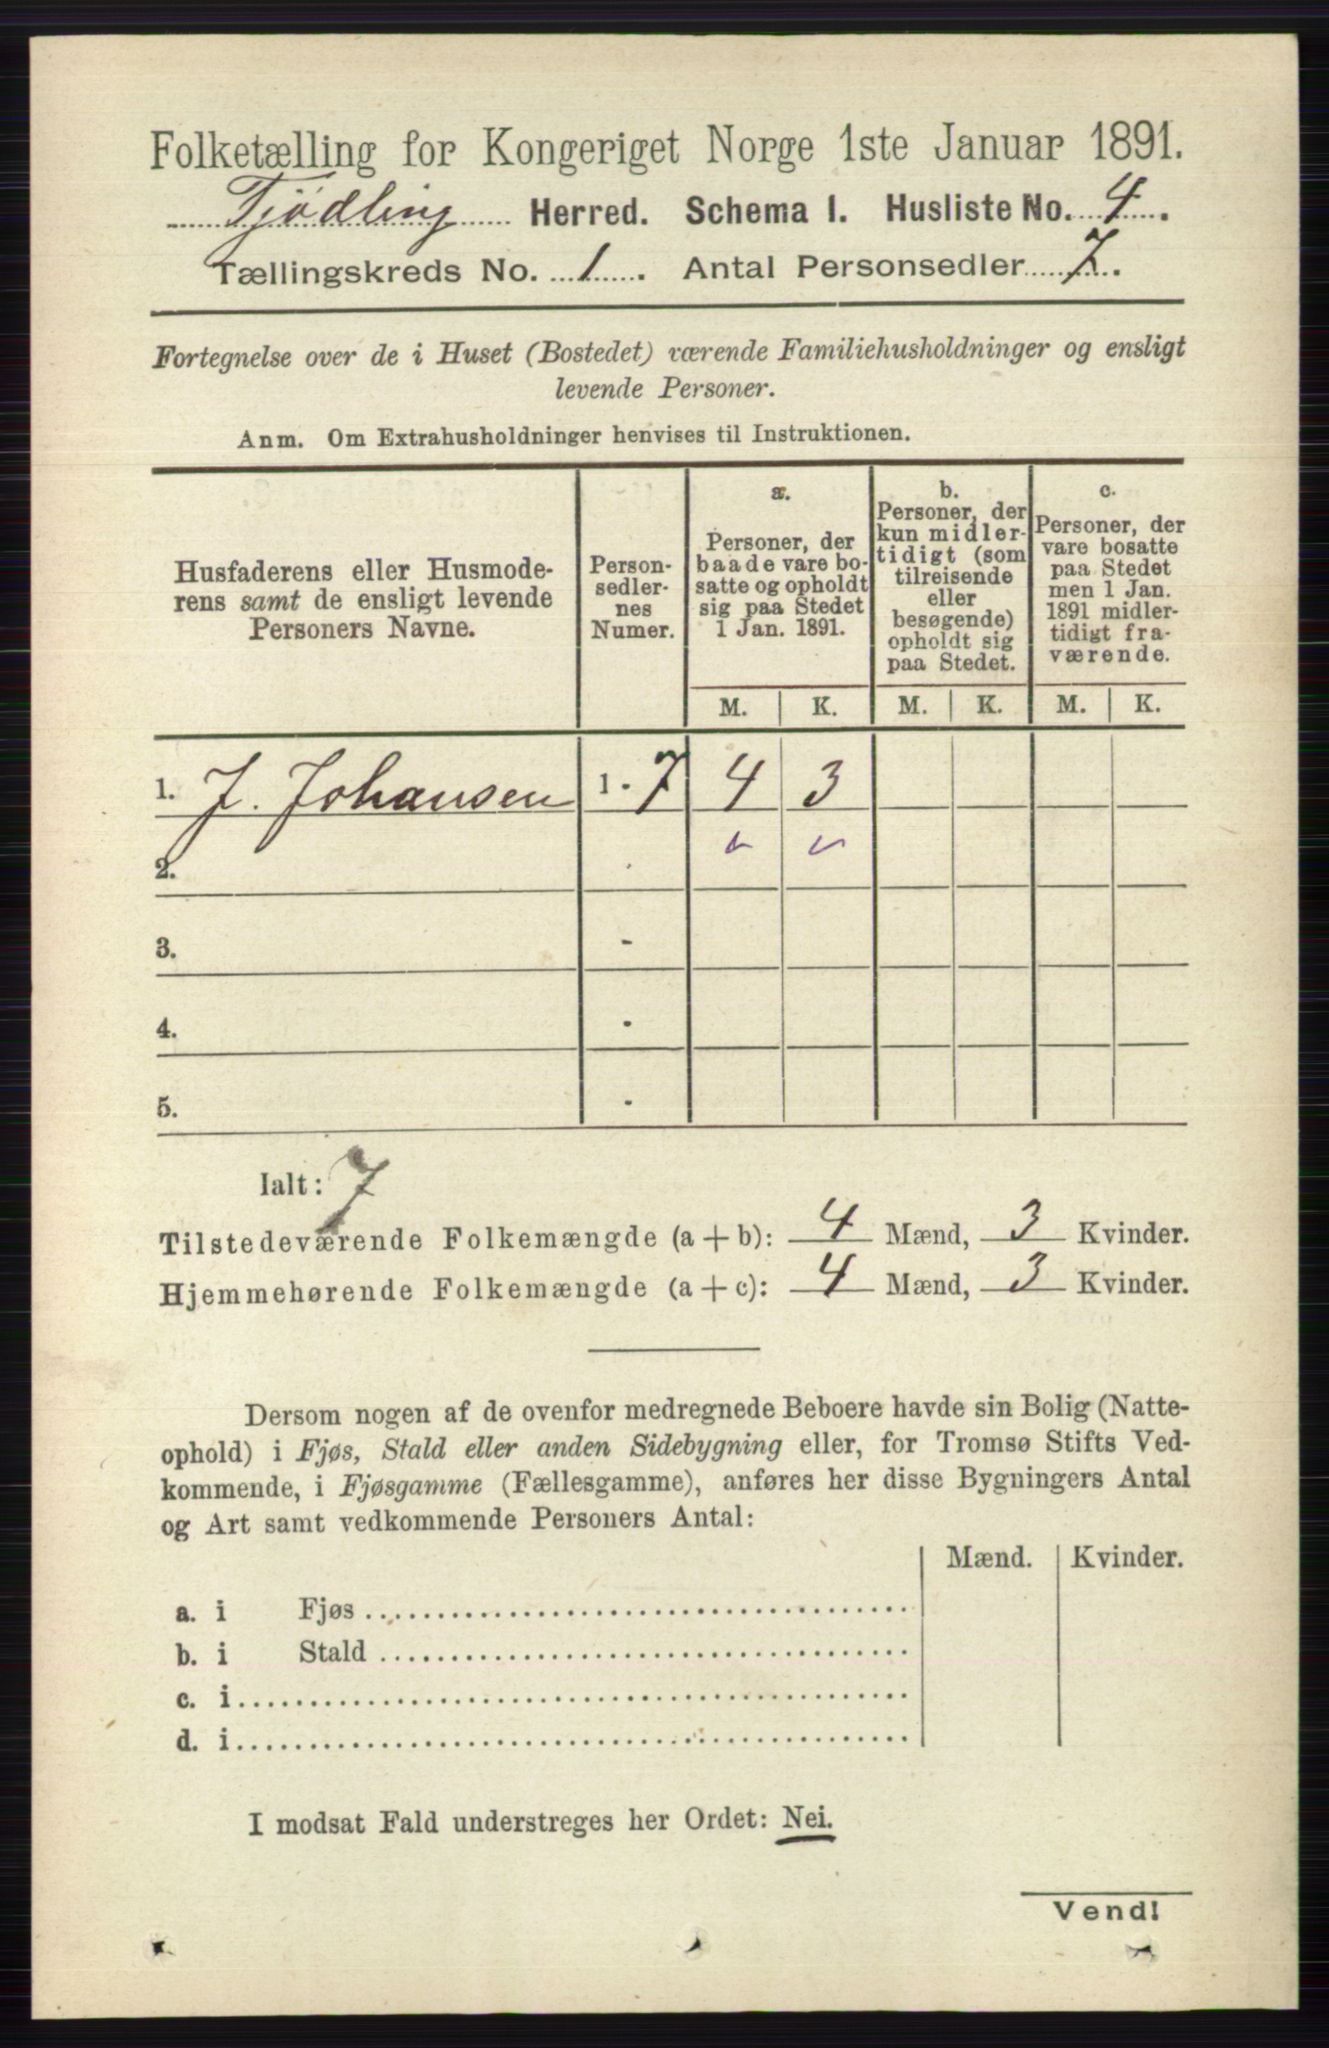 Folketælling for Kongeriget Norge 1ste Januar 1891.
Tjödling Herred. Schema I. Husliste No. 4.
Tællingskreds No. 1. Antal Personsedler 7.
Fortegnelse over de i Huset (Bostedet) værende Familiehusholdninger og ensligt
levende Personer.
Anm. Om Extrahusholdninger henvises til Instruktionen.
Husfaderens eller Husmode-
rens samt de ensligt levende
Personers Navne.
Person-
sedler-
nes
Numer.
a.
Personer, der
baade vare bo-
satte og opholdt
sig paa Stedet
1 Jan. 1891.
b.
Personer, der
kun midler-
tidigt (som
tilreisende
eller
besøgende)
opholdt sig
paa Stedet.
c.
Personer, der
vare bosatte
paa Stedet
men 1 Jan.
1891 midler-
tidigt fra-
værende.
M. K. M. K. M. K.
1. J. Johansen 1 - 7 4 3
2.
3. -
4. -
5. -
Ialt: 7
Tilstedeværende Folkemængde (a + b): 4 Mænd, 3 Kvinder.
Hjemmehørende Folkemængde (a + c): 4 Mænd, 3 Kvinder.
Dersom nogen af de ovenfor medregnede Beboere havde sin Bolig (Natte-
ophold) i Fjøs, Stald eller anden Sidebygning eller, for Tromsø Stifts Ved-
kommende, i Fjøsgamme (Fællesgamme), anføres her disse Bygningers Antal
og Art samt vedkommende Personers Antal:
Mænd. Kvinder.
a. i Fjøs
b. i Stald
c. i
d. i
I modsat Fald understreges her Ordet: Nei.
Vend!